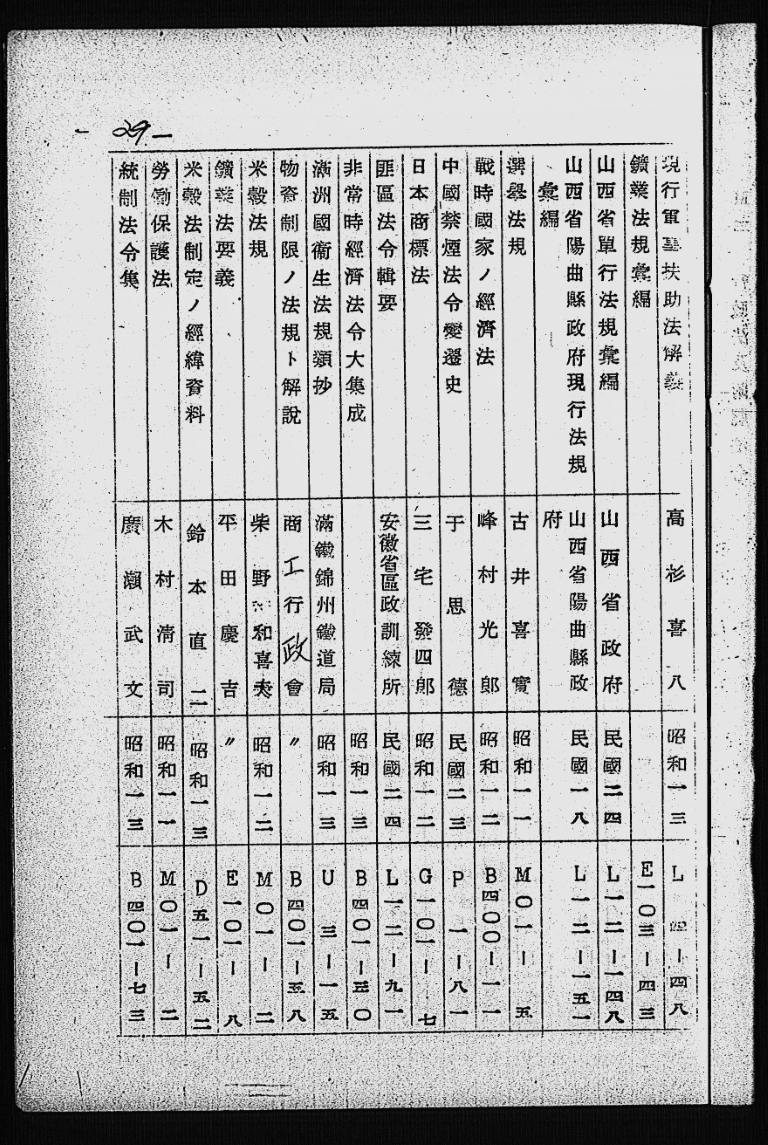 — 29 —
現行軍事扶助法解義 高杉喜八 昭和一三 L 四—四八
鑛業法規彙編 E一〇三—四三
山西省單行法規彙編 山西省政府 民國二四 L一二—一四八
山西省陽曲縣政府現行法規 山西省陽曲縣政 民國一八 L一二—一五一
彙編 府
選擧法規 古井喜實 昭和一一 M〇一—五
戰時國家ノ經濟法 峰村光郎 昭和一二 B四〇〇—一一
中國禁煙法令變遷史 于思德 民國二三 P 一—八一
日本商標法 三宅發四郎 昭和一二 G一〇一—七
匪區法令輯要 安徽省區政訓練所 民國二四 L一二—九一
非常時經濟法令大集成 昭和一三 B四〇一—三〇
滿洲國衞生法規類抄 滿鐵錦州鐵道局 昭和一三 U 三—一五
物資制限ノ法規ト解說 商工行政會 〃 B四〇一—五八
米穀法規 柴野和喜夫 昭和一二 M〇一—二
鑛業法要義 平田慶吉 〃 E一〇一—八
米穀法制定ノ經緯資料 鈴木直二 昭和一三 D五一—五二
勞働保護法 木村淸司 昭和一一 M〇一—二
統制法令集 廣瀨武文 昭和一三 B四〇一—七三